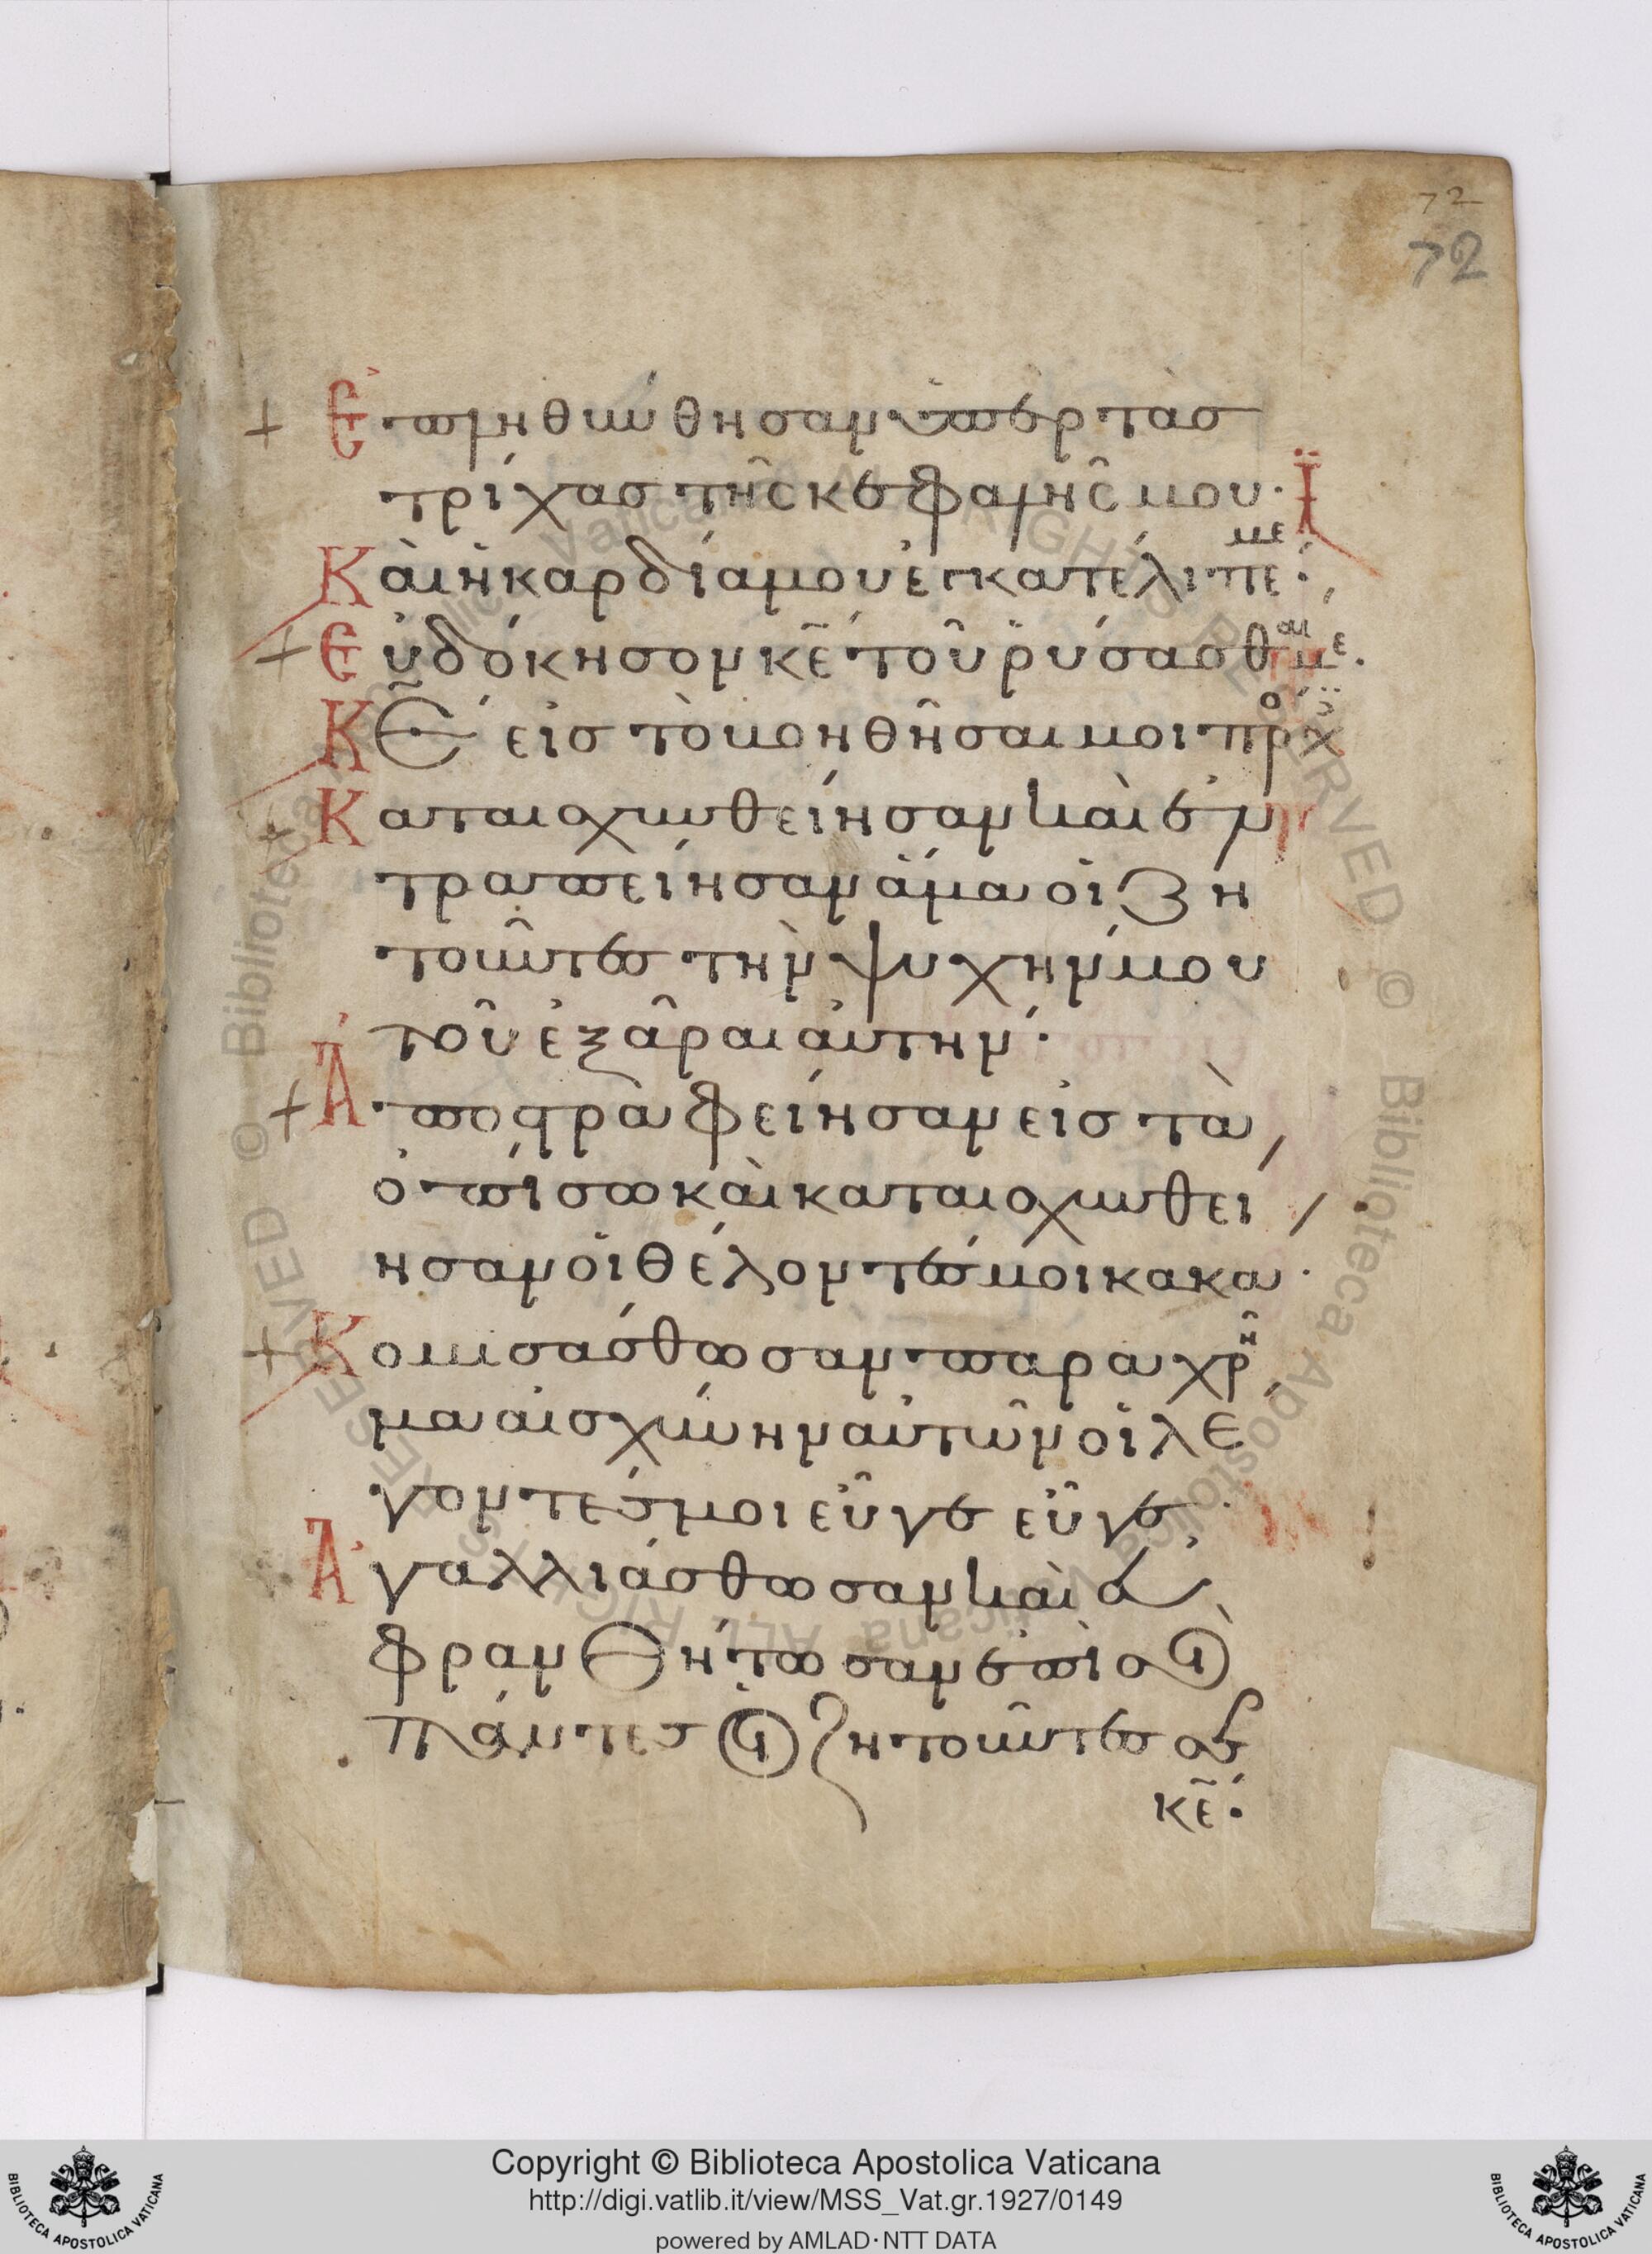 72
72
Ἐπληθύνθησαν ὑπὲρ τὰσ
τρίχασ τῆς κεφαλῆς μου·
Καὶ ἡ καρδία μου ἐγκατέλιπέ με·
Εὐδόκησον κε τοῦ ῥύσασθαι με.
Κε εἰσ τὸ βοηθῆσαι μοι πρόσχ
Καταισχυνθείησαν καὶ ἐν
τραπείησαν ἅμα οἱ ζη
τοῦντεσ τὴν ψυχήν μου
τοῦ ἐξᾶραι αὐτήν·
Ἀποστραφείησαν εἰσ τὰ
ὀπίσω καὶ καταισχυνθεί
ησαν οἱ θέλοντέσ μοι κακα·
Κομισάσθωσαν παραχρῆ
μα αἰσχύνην αὐτῶν οἱ λέ
γοντέσ μοι εὖγε εὖγε·
Ἀγαλλιάσθωσαν καὶ εὐ
φρανθήτωσαν ἐπὶ σοὶ
πάντεσ οἱ ζητοῦντεσ σε
κε·
Copyright © Biblioteca Apostolica Vaticana
http://digi.vatlib.it/view/MSS_Vat.gr.1927/0149
powered by AMLAD·NTT DATA
BIBLIOTECA APOSTOLICA VATICANA
BIBLIOTECA APOSTOLICA VATICANA